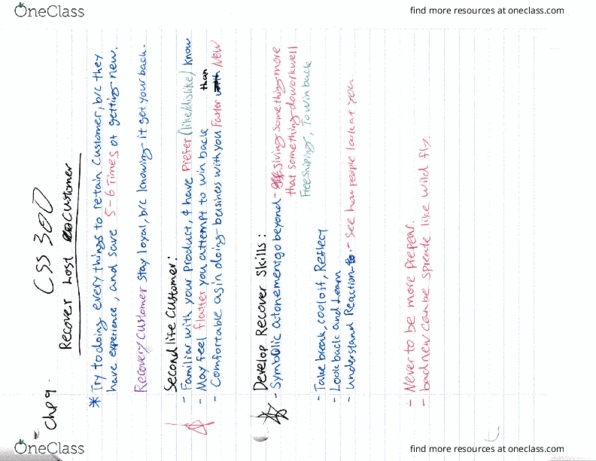 OneClass
find more resources at oneclass.com
Chp 9.
CSS 300
Recover Lost Customer
* Try to doing every things to retain customer, b/c they
have experience, and save 5-6 times of getting new.
Recovery customer stay loyal, b/c knowing it got your back.
Second life customer:
- Familiar with your product, & have Prefer (like/dislike) know
- May feel flatter you attempt to win back
than
- Comfortable again doing business with you Faster NEW
Develop Recover Skills:
- Symbolic atonement go beyond - giving something more
that something do work well
Free shipping, To win back
- Take break, cool off, Reflect
- Look back and Learn
- Understand Reaction - See how people look at you.
- Never to be more prepear.
- bad new can be spreate like wild fly.
OneClass
find more resources at oneclass.com